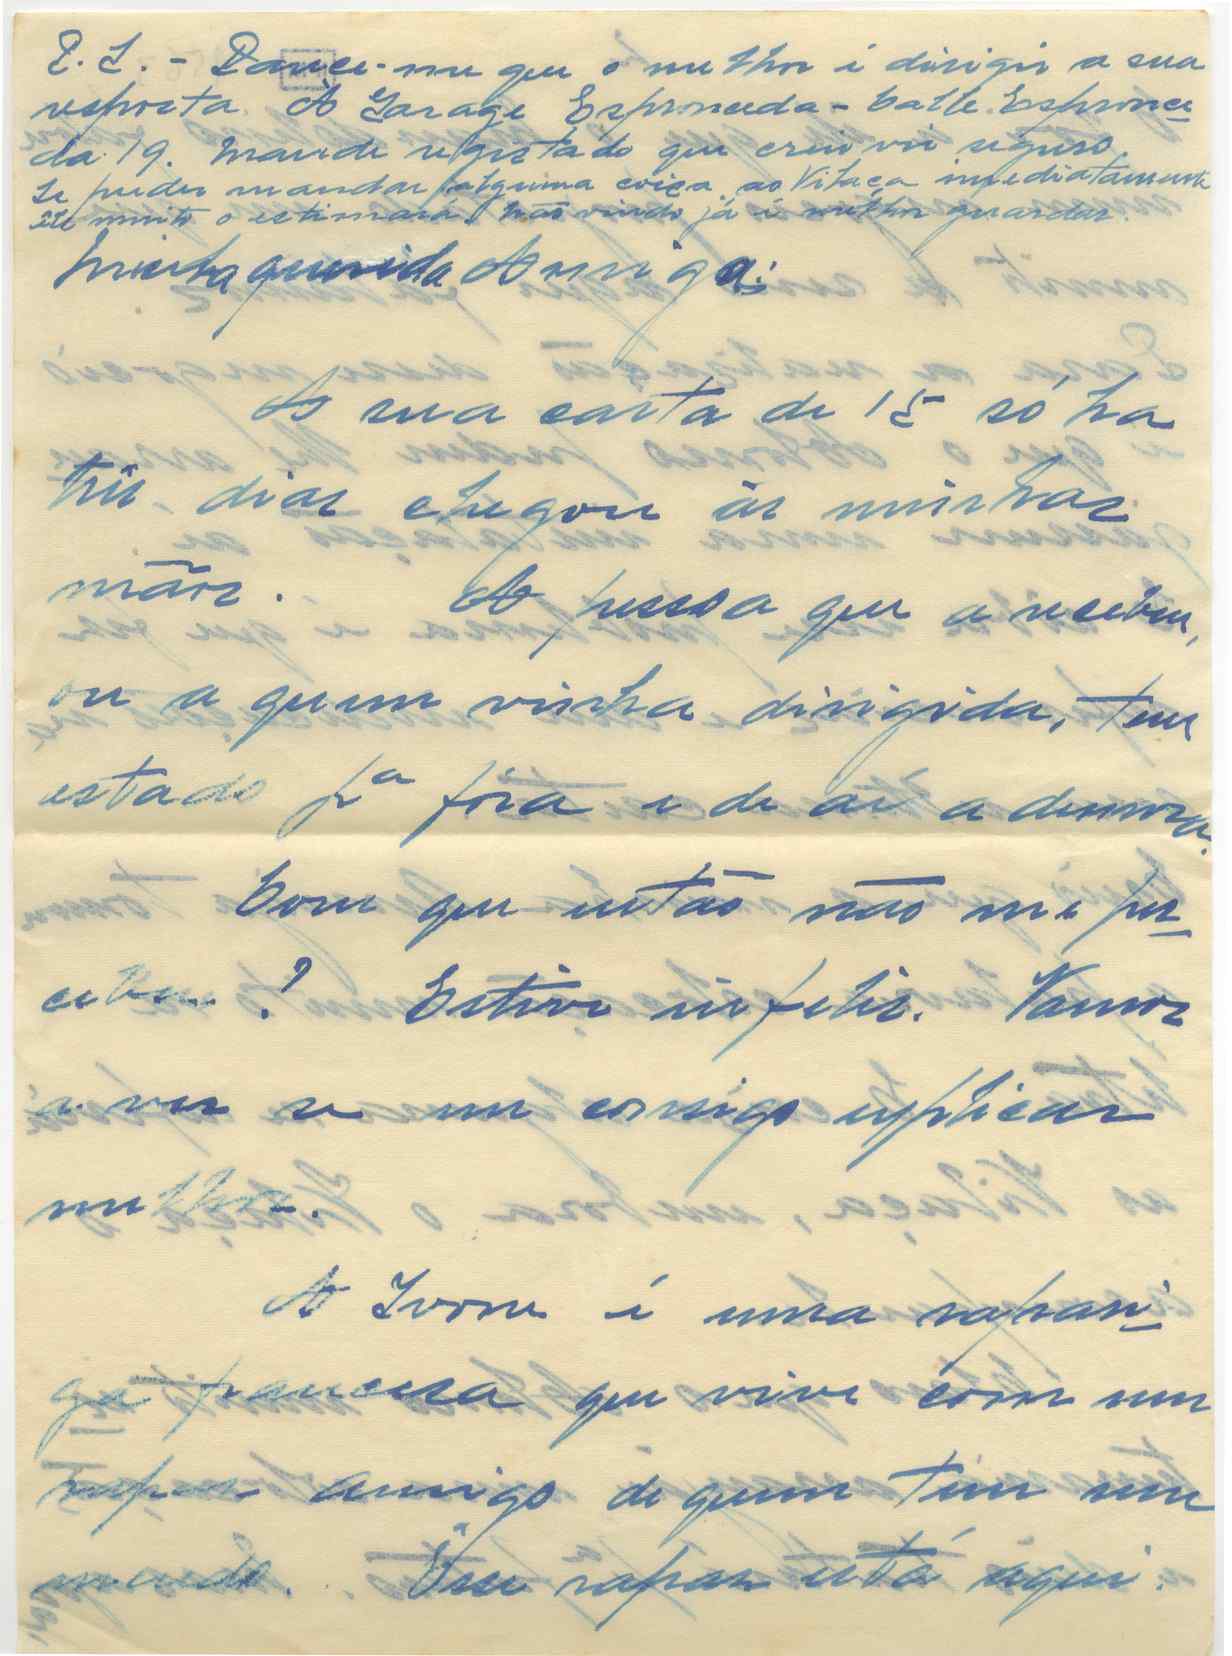 P.S. - Parece-me que o melhor é dirigir a sua
resposta. A Garage Espronceda - Calle Espronce
da 19. Mande registado que creio vir seguro.
Se puder mandar alguma coisa ao Vilaça imediatamente
êle muito o estimará. Não vindo já é melhor guardar.
Minha querida Amiga:
A sua carta de 15 só ha
três dias chegou ás minhas
mãos. A pessoa que a recebeu,
ou a quem vinha dirigida, tem
estado pª fóra e de aí a demora.
Com que então não me per
cebeu? Estive infeliz. Vamos
a ver se me consigo explicar
melhor.
A Ivone é uma rapari
ga francesa que vive com um
rapaz amigo de quem tem um
miudo. Êsse rapaz está aqui.